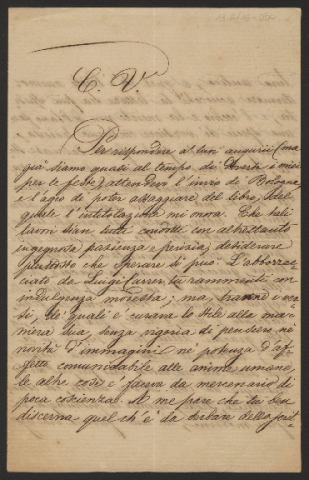 C. V.
Per rispondere a' tuoi augurii (ma
già siamo quasi al tempo di i miei
per le feste) attendevo l'invio di Bologna
e l'agio di poter assaggiare del libro, del
quale l'intitolazione mi onora. Che tali
lavori sian tutti condotti con altrettanto
ingegnosa pazienza e perizia, desiderare
piuttosto che sperare si può. L'abboz
ciato da Luigi Carrer, tu rammenti con
indulgenza modesta; ma, tranne i ver
si, de' quali e' curava lo stile alla ma
niera sua, senza vigoria di pensiero nè
novità d'immagini nè potenza d'af
fetti comunicabile alle anime umane,
le altre cose e' faceva da mercenario di
poca coscienza. A me pare che tu ben
discerna quel ch'è da serbare della